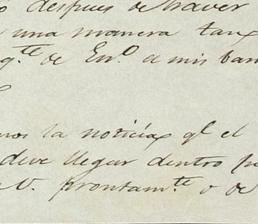 despues de haver
una manera tan
q.te de En.o a mis ban
nos la noticia q.l el
deve llegar dentro
V. prontam.te o de